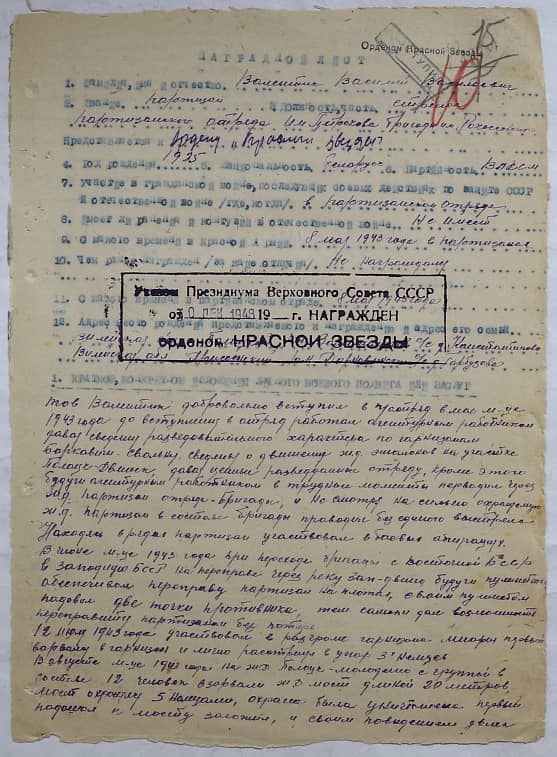 Орденом Красной Звезды
15
НАГРАДНОЙ ЛИСТ
1. Фамилия, имя и отчество. Валентик Василий Васильевич
2. Звание. партизан и должность, часть. стрелок
партизанского отряда им.
Представляется к Ордену "Красной Звезды"
4. Год рождения. 1925 5. Национальность. белорус 6. Партийность. ВЛКСМ
7. Участие в гражданской войне, последующих боевых действиях по защите СССР
и отечественной войне /где, когда/. в партизанском отряде
8. Имеет ли ранения и контузии в отечественной войне. Не имеет
9. С какого времени в Красной Армии. 8 мая 1943 года в партизанах
10. Чем ранее награжден /за какие отличия/. Не награждался
Указом Президиума Верховного Совета СССР
от 30 ДЕК 1948 19 г. НАГРАЖДЕН
орденом КРАСНОЙ ЗВЕЗДЫ
11. С какого времени в партизанском отряде. 8 мая 1943 года
12. Адрес место рождения представляемого к награждению и адрес его семьи.
1. КРАТКОЕ, КОНКРЕТНОЕ ИЗЛОЖЕНИЕ ЛИЧНОГО БОЕВОГО ПОДВИГА ИЛИ ЗАСЛУГ
тов Валентик добровольно вступил в п/отряд в мае м-це
1943 года до вступления в отряд работал агентурным работником
давал сведения разведовательного характера по гарнизонам
сведения о движении ж.д. эшелонов на участке
Полоцк-Двинск, давал ценные разведданные отряду, кроме этого
будучи агентурным работником в трудные моменты переводил через
ж.д. партизан отряда-бригады, и не смотря на сильно охраняемую
ж.д. партизан в составе бригады проводил без единого выстрела
Находясь в рядах партизан участвовал в боевых операциях.
В июне м-це 1943 года при переходе бригады с Восточной БССР
в западную БССР на переправе через реку Зап-Двина будучи пулеметчиком
обеспечивал переправу партизан на плотах, своим пулеметом
подавил две точки противника, тем самым дал возможность
переправится партизанам без потерь
12 1943 года участвовал в разгроме гарнизона первый
ворвался в гарнизон и лично расстрелял в упор 3х немцев
В августе м-це 1943 года на ж/д Полоцк-Молодечно с группой в
составе 12 человек взорвали ж.д. мост длиной 20 метров,
мост охраняли 5 немцами, охрана была уничтожена первый
подошел к мосту заложил, и своим поведением